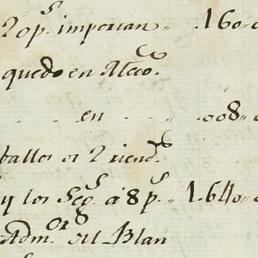 2 op.s importan .. 160
quedo en Alcco.
en .. 008
ballos os 2 riend.s
y los Seg.s á 8 p.s .. 1.640
Adm.ors del Blan